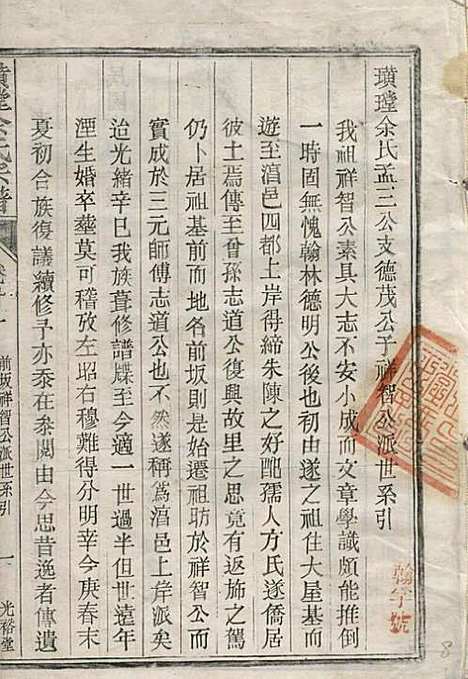 璜瑝余氏孟三公支德茂公子祥智公派世系引
我祖祥智公素具大志不安小成而文章學識頗能推倒
一時固無愧翰林德明公後也初由遂之祖住大星基而
遊至涫邑四都上岸得締朱陳之好配孺人方氏遂僑居
彼土焉傳至曾孫志道公復興故里之思竟有返斾之駕
仍卜居祖基前而地名前坂則是始遷祖昉於祥智公而
實成於三元師傅志道公也不然遂稱爲涫邑上岸派矣
迨光緒辛巳我族葺修譜牒至今適一世過半但世遠年
湮生婚卒塟莫可稽攷左昭右穆難得分明幸今庚春末
夏初合族復議續修予亦忝在叅閱由今思昔逸者傳遺
璜瑝余氏宗譜
前坂祥智公派世系引
一
光裕堂
翰字號
8